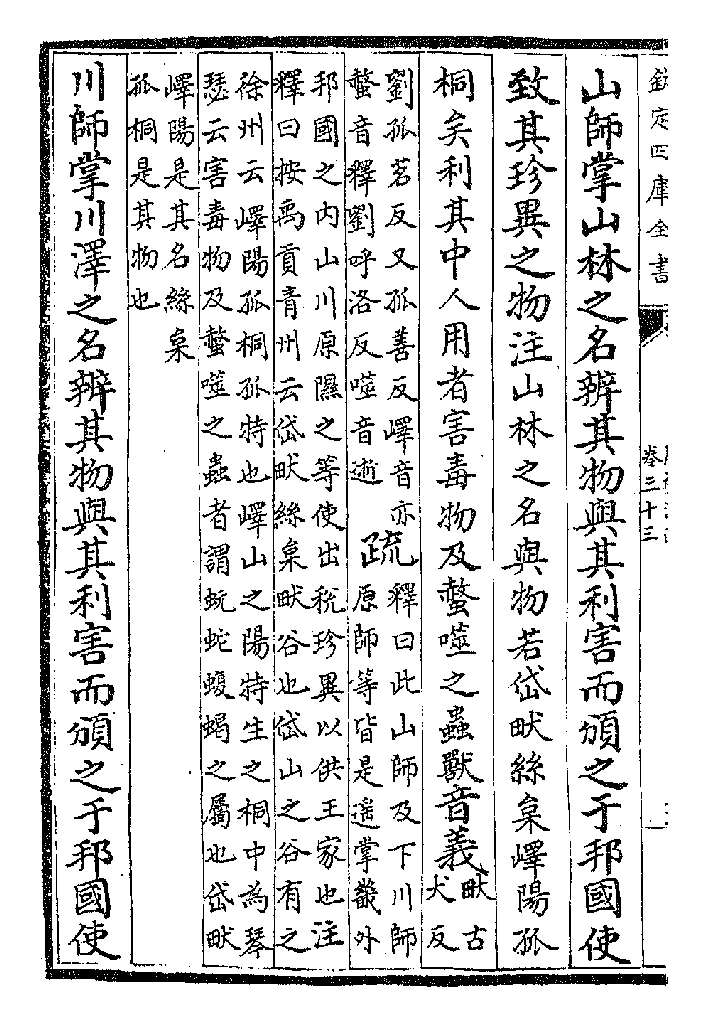 欽定四庫全書
卷三十三
山師掌山林之名辨其物與其利害而頒之于邦國使
致其珍異之物注山林之名與物若岱畎絲枲嶧陽孤
桐矣利其中人用者害毒物及螫噬之蟲獸音義畎古
犬反
劉孤茗反又孤善反嶧音亦
螫音釋劉呼洛反噬音逝
疏釋曰此山師及下川師
原師等皆是遥掌畿外
邦國之内山川原隰之等使出税珍異以供王家也注
釋曰按禹貢青州云岱畎絲枲畎谷也岱山之谷有之
徐州云嶧陽孤桐孤特也嶧山之陽特生之桐中為琴
瑟云害毒物及螫噬之蟲者謂蚖蛇蝮蝎之屬也岱畎
嶧陽是其名絲枲
孤桐是其物也
川師掌川澤之名辨其物與其利害而頒之于邦國使